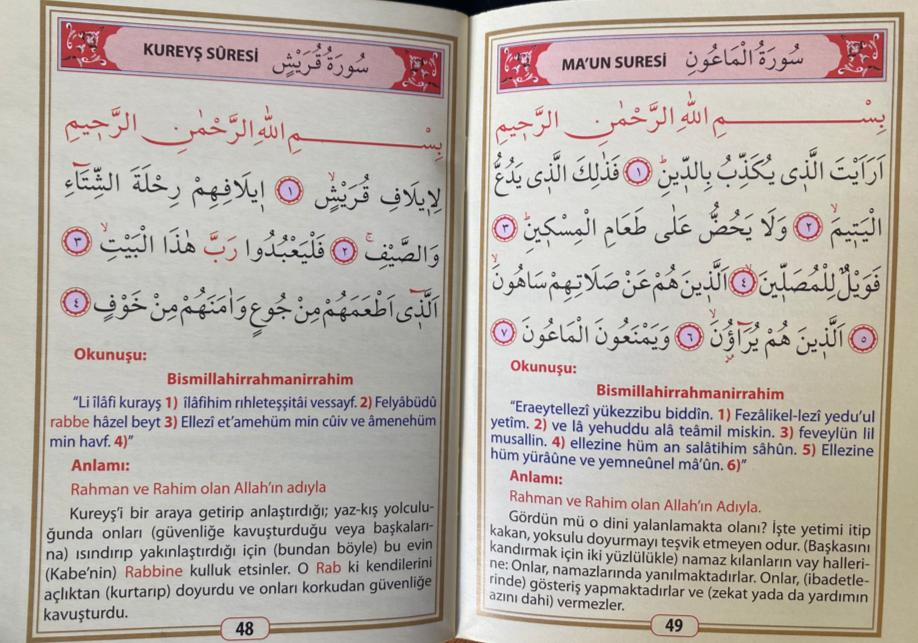 KUREYŞ SÛRESİ سُورَةُ قُرَيْشٍ
بِسْــــــمِ اللّٰهِ الرَّحْمٰنِ الرَّحٖيمِ
لِاٖيلَافِ قُرَيْشٍۙ ﴿١﴾ اٖيلَافِهِمْ رِحْلَةَ الشِّتَٓاءِ
وَالصَّيْفِۚ ﴿٢﴾ فَلْيَعْبُدُوا رَبَّ هٰذَا الْبَيْتِۙ ﴿٣﴾
اَلَّذٖٓى اَطْعَمَهُمْ مِنْ جُوعٍ وَاٰمَنَهُمْ مِنْ خَوْفٍ ﴿٤﴾
Okunuşu:
Bismillahirrahmanirrahim
“Li îlâfi kurayş 1) îlâfihim rıhleteşşitâi vessayf. 2) Felyâbüdû
rabbe hâzel beyt 3) Ellezî et’amehüm min cûiv ve âmenehüm
min havf. 4)”
Anlamı:
Rahman ve Rahim olan Allah’ın adıyla
Kureyş’i bir araya getirip anlaştırdığı; yaz-kış yolculu-
ğunda onları (güvenliğe kavuşturduğu veya başkaları-
na) ısındırıp yakınlaştırdığı için (bundan böyle) bu evin
(Kabe’nin) Rabbine kulluk etsinler. O Rab ki kendilerini
açlıktan (kurtarıp) doyurdu ve onları korkudan güvenliğe
kavuşturdu.
48
MA’UN SURESİ سُورَةُ الْمَاعُونِ
بِسْــــــمِ اللّٰهِ الرَّحْمٰنِ الرَّحٖيمِ
اَرَاَيْتَ الَّذٖى يُكَذِّبُ بِالدّٖينِۜ ﴿١﴾ فَذٰلِكَ الَّذٖى يَدُعُّ
الْيَتٖيمَۙ ﴿٢﴾ وَلَا يَحُضُّ عَلٰى طَعَامِ الْمِسْكٖينِۜ ﴿٣﴾
فَوَيْلٌ لِلْمُصَلّٖينَۙ ﴿٤﴾ اَلَّذٖينَ هُمْ عَنْ صَلَاتِهِمْ سَاهُونَۙ
﴿٥﴾ اَلَّذٖينَ هُمْ يُرَٓاؤُ۫نَۙ ﴿٦﴾ وَيَمْنَعُونَ الْمَاعُونَ ﴿٧﴾
Okunuşu:
Bismillahirrahmanirrahim
“Eraeytellezî yükezzibu biddîn. 1) Fezâlikel-lezî yedu’ul
yetîm. 2) ve lâ yehuddu alâ teâmil miskin. 3) feveylün lil
musallin. 4) ellezine hüm an salâtihim sâhûn. 5) Ellezine
hüm yürâûne ve yemneûnel mâ’ûn. 6)”
Anlamı:
Rahman ve Rahim olan Allah’ın Adıyla.
Gördün mü o dini yalanlamakta olanı? İşte yetimi itip
kakan, yoksulu doyurmayı teşvik etmeyen odur. (Başkasını
kandırmak için iki yüzlülükle) namaz kılanların vay halleri-
ne: Onlar, namazlarında yanılmaktadırlar. Onlar, (ibadetle-
rinde) gösteriş yapmaktadırlar ve (zekat yada da yardımın
azını dahi) vermezler.
49